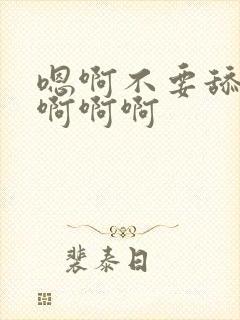 嗯啊不要舔
啊啊啊
裴泰日